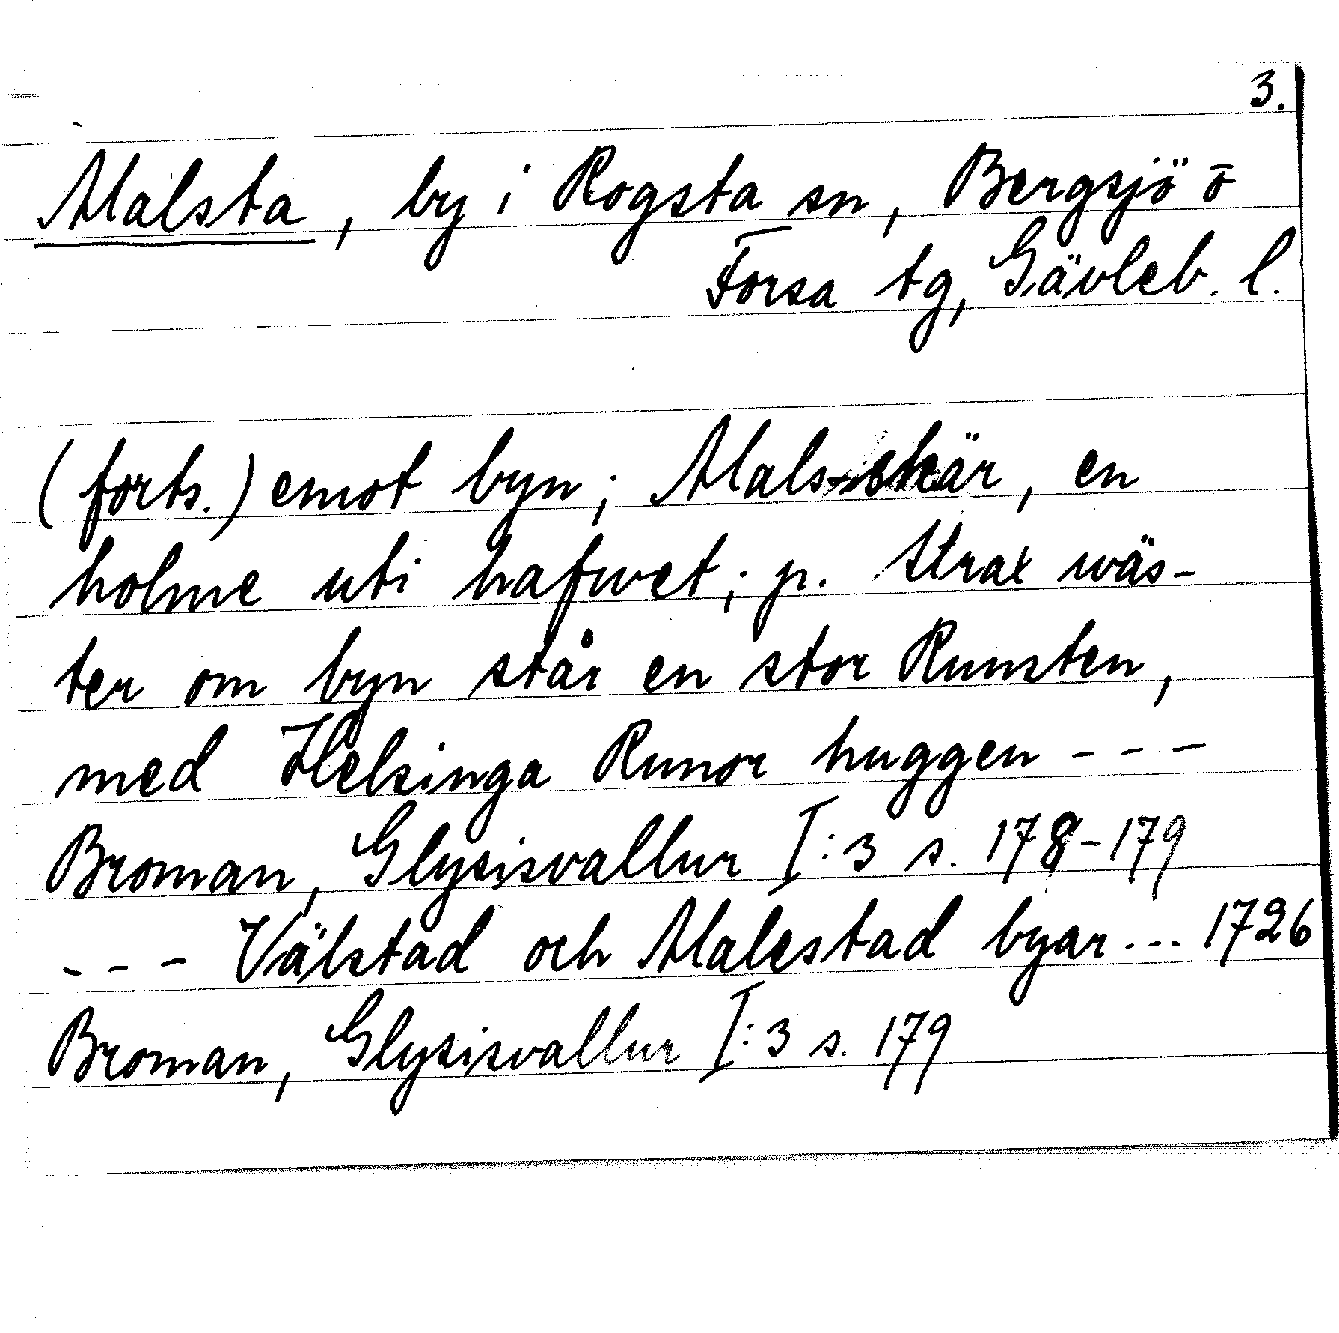 3.
Malsta, by i Rogsta sn, Bergsjö o
Forsa tg, Gävleb. l.
(forts.) emot byn; Mals-skär, en
holme uti hafwet; p. Strax wäs-
ter om byn står en stor Runsten,
med Helsinga Runor huggen ---
Broman, Glysisvallur I:3 s. 178-179
--- Välstad och Malestad byar... 1726
Broman, Glysisvallur I:3 s. 179